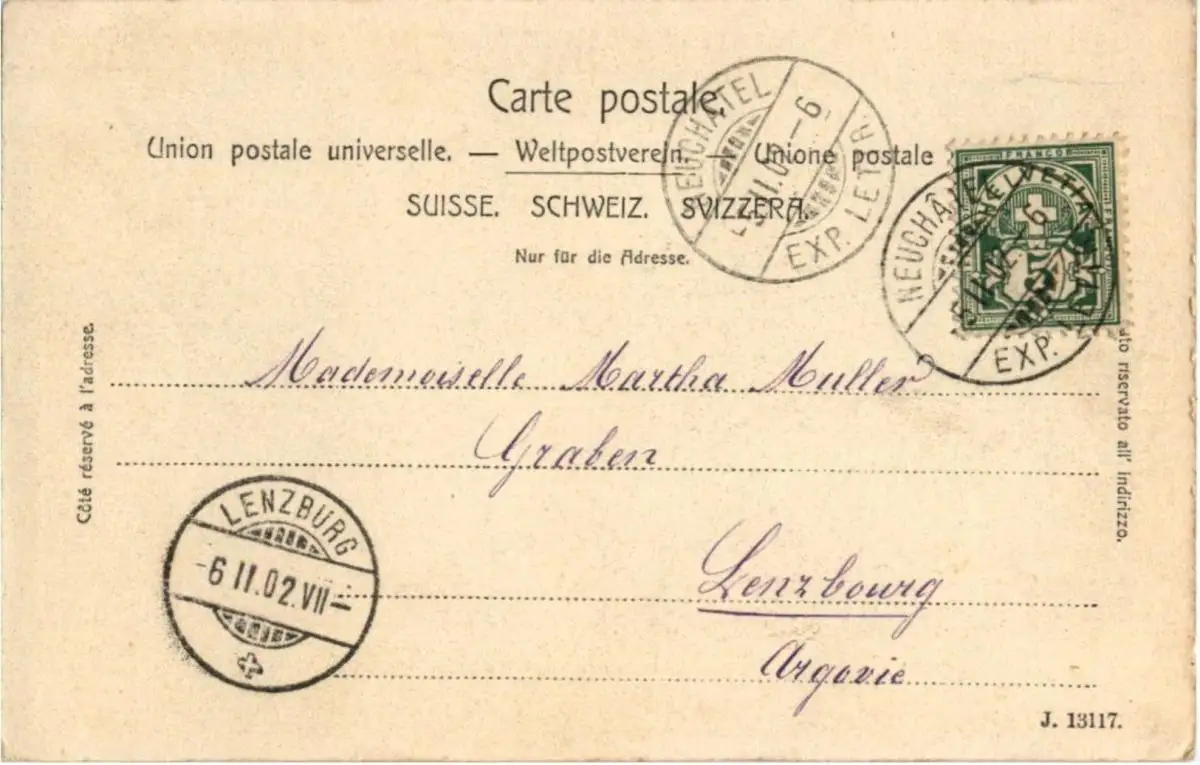 Carte postale.
Union postale universelle. — Weltpostverein. — Unione postale
SUISSE. SCHWEIZ. SVIZZERA.
Nur für die Adresse.
NEUCHÂTEL
II.02 – 6
EXP. LETTR.
FRANCO
HELVETIA
5
NEUCHÂTEL
II.02 – 6
EXP. LETTR.
Côté réservé à l'adresse.
Mademoiselle Martha Muller
Graben
Lenzbourg
Argovie
LENZBURG
-6 II.02.VII–
riservato all' indirizzo.
J. 13117.